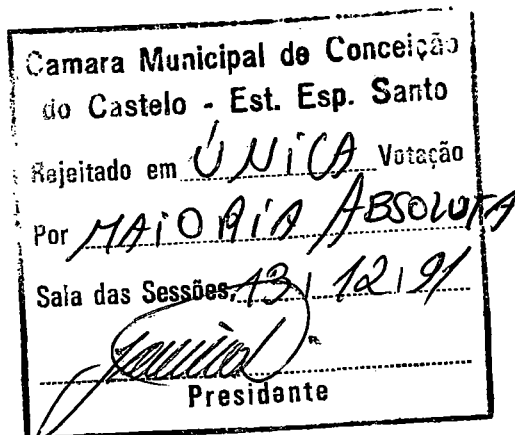 Camara Municipal de Conceição
do Castelo - Est. Esp. Santo
Rejeitado em ÚNiCA Votação
Por MAiORiA ABSOLUTA
Sala das Sessões, 13 / 12 / 91
Presidente